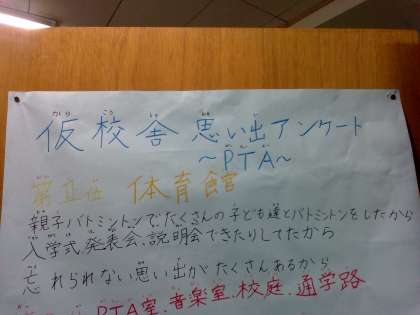 かり こう
仮校舎 思い出アンケート
～PTA～
体育館
親子バトミントンでたくさんの子ども達とバトミントンをしたから
入学式、発表会、説明会できたりしてたから
忘れられない思い出がたくさんあるから
PTA室、音楽室、校庭、通学路